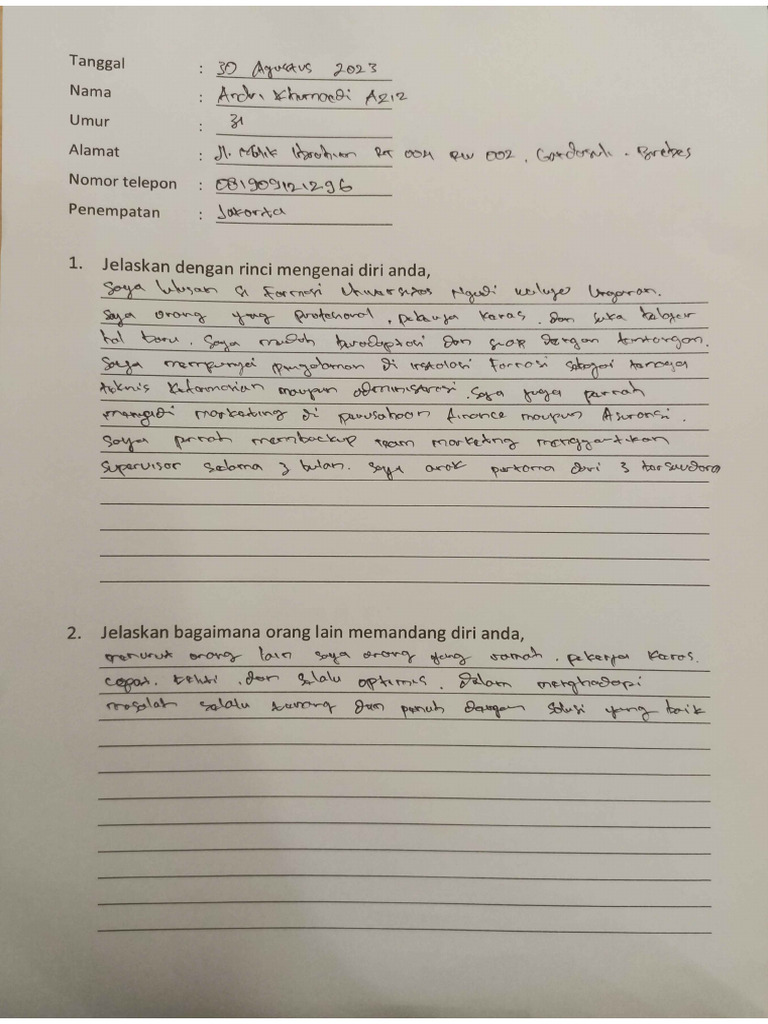 Tanggal : 30 Agustus 2023
Nama : Andri Khumaedi Aziz
Umur : 31
Alamat : Jl. Malik Ibrahim RT 004 RW 002, Gandasuli - Brebes
Nomor telepon : 081909121296
Penempatan : Jakarta
1. Jelaskan dengan rinci mengenai diri anda,
Saya lulusan S1 Farmasi Universitas Ngudi Waluyo Ungaran.
Saya orang yang profesional, pekerja keras, dan suka belajar
hal baru. Saya mudah beradaptasi dan siap dengan tantangan.
Saya mempunyai pengalaman di instalasi Farmasi sebagai tenaga
teknis kefarmasian maupun administrasi. Saya juga pernah
menjadi marketing di perusahaan finance maupun Asuransi.
Saya pernah membackup team marketing menggantikan
supervisor selama 3 bulan. Saya anak pertama dari 3 bersaudara
2. Jelaskan bagaimana orang lain memandang diri anda,
menurut orang lain saya orang yang ramah, pekerja keras,
cepat, teliti, dan selalu optimis. Dalam menghadapi
masalah selalu tenang dan penuh dengan solusi yang baik